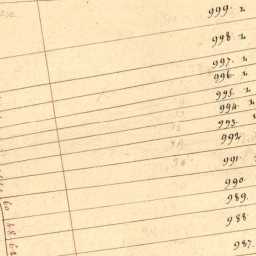 999. 2
998. 2
997. 2
996. 2
995. 2
994. 2
993.
992
991
990
989.
988
987.